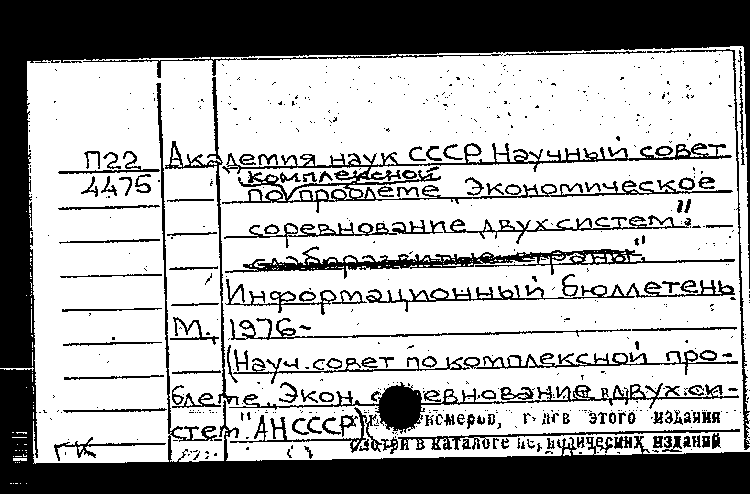 П22 Академия наук СССР. Научный совет
комплексной
4475 по проблеме „Экономическое
соревнование двух систем".
Информационный бюллетень
М., 1976-
(Науч. совет по комплексной про-
блеме „Экон. соревнование двух си-
стем" АН СССР)
номеров, этого издания
смотри в каталоге периодических изданий
ГК